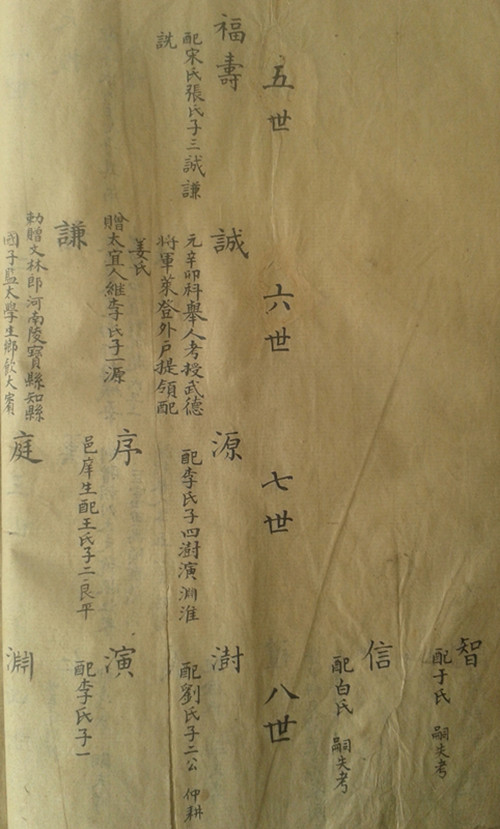 智
配于氏 嗣失考
信
配白氏 嗣失考
五世
六世
七世
八世
福壽
配宋氏張氏子三誠謙
説
誠
元辛卯科舉人考授武德
將軍萊登外戶提領配
姜氏
贈太宜人継李氏子一源
謙
勅贈文林郎河南陵寶縣知縣
國子監太學生鄉飲大賓
源
配李氏子四澍演淵淮
序
邑庠生配王氏子二良平
庭
澍
配劉氏子二公 仲耕
演
配李氏子一
淵